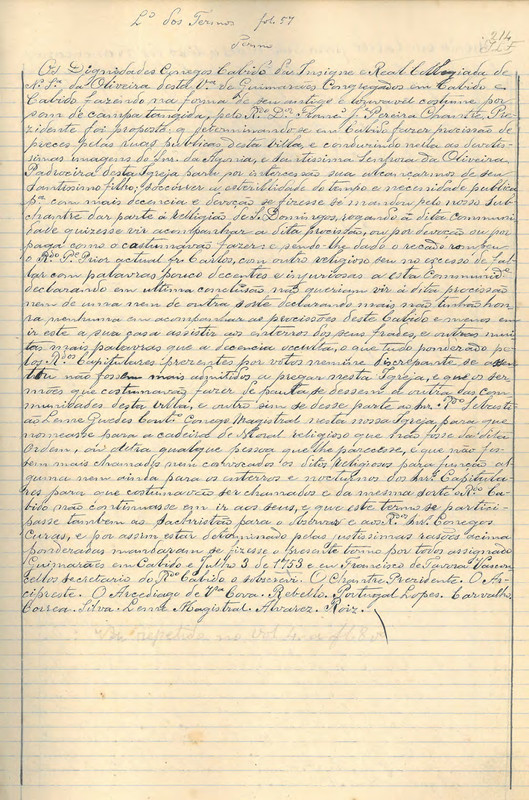 Lº dos Termos fol. 57
214
Termo
Os Dignidades Conegos Cabido da Insigne e Real Collegiada de
N. Sª da Oliveira desta Vª de Guimarães Congregados em Cabido e
Cabido fazendo na forma de seu antigo e louvavel costume por
som de campa tangida, pelo Rdo Dr. Franco Jº Pereira Chantre, Pre-
zidente foi proposto, q determinando-se em Cabido fazer procissão de
preces pelas ruas publicas desta villa, e conduzindo nella as devotis-
simas imagens do Snr. da Agonia, e Santissima Senhora da Oliveira,
Padroeira desta Igreja para por intercessão sua alcançarmos de seu
Santissimo filho, soccorrer a esterilidade do tempo e necessidade publica
pª com mais decencia e devoção se fizesse se mandou pelo nosso Sub-
chantre dar parte á Religião de S. Domingos, rogando á dita Communi-
dade quizesse vir acompanhar a dita procissão, ou por devoção ou por
paga como o costumavão fazer e sendo-lhe dado o recado rompeu
o Rdo Pe Prior actual fr. Carlos, com outro religioso seu no excesso de fal-
lar com palavras pouco decentes e injuriosas a esta Communide
declarando em ultima conclusão não querião vir á dita procissão
nem de uma nem de outra sorte declarando mais não tinhão hon-
ra nenhuma em acompanhar as procissões deste Cabido e menos em
ir este a sua casa assistir aos enterros dos seus frades, e outras mui-
tas mais palavras que a decencia occulta, o que tudo ponderado pe-
los R.dos Capitulares prezentes por votos nemine discrepante se assen-
tou não fossem mais admitidos a pregar nesta Igreja, e que os ser-
mões que costumavão fazer de pauta se dessem a outras das com-
munidades desta villa, e outro sim se desse parte ao Snr. Rdo Sebasti-
ão Leme Guedes Couto Conego Magistral nesta nossa Igreja, para que
nomeasse para a cadeira de Moral religioso que não fosse da dita
Ordem, ou outra qualquer pessoa que lhe parecesse, e que não fos-
sem mais chamados nem convocados os ditos religiosos para função al-
guma nem ainda para os enterros e nocturnos dos Snrs Capitula-
res para que costumavão ser chamados e da mesma sorte o Rdo Ca-
bido não continuasse em ir aos seus, e que este termo se partici-
passe tambem ao Sachristão para o observar e aos Rdos Snrs Conegos
Curas, e por assim estar determinado pelas justissimas rasões acima
ponderadas mandaram se fizesse o presente termo por todos assignado
Guimarães em Cabido e Julho 3 de 1753 e eu Francisco de Tavora Vascon
cellos secretario do Rdo Cabido o subscrevi. O Chantre Presidente. O Ar-
cipreste. O Arcediago de Vª Cova. Rebello. Portugal Lopes. Carvalho.
Correa. Silva. Leme Magistral. Alvarez. Roiz.
repetida no vol 4